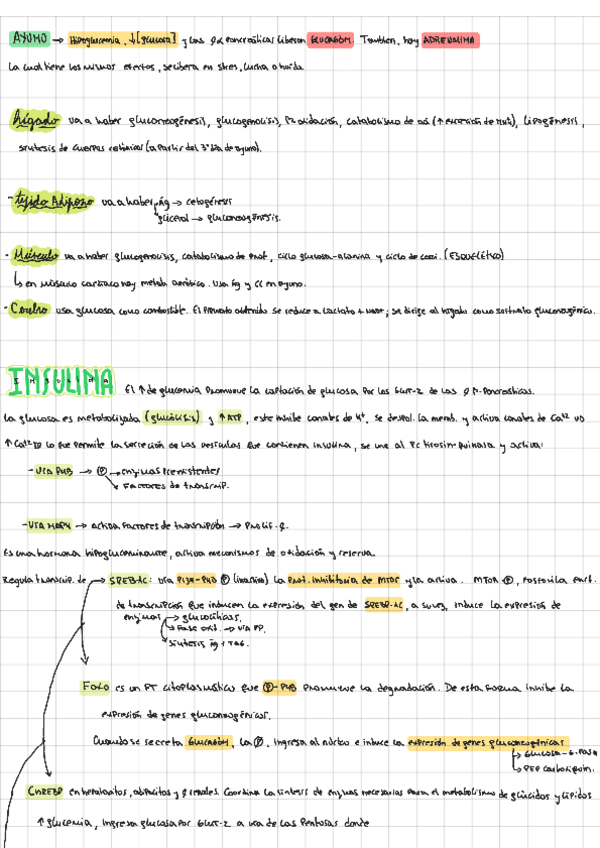 AYUNO → Hipoglucemia, ↓[glucosa] y las α pancreáticas liberan GLUCAGÓN. También, hay ADRENALINA
la cual tiene los mismos efectos, se libera en stres, lucha o huida.
hígado va a haber gluconeogénesis, glucogenolisis, β oxidación, catabolismo de aá (↑ excreción de NH₃), lipogénesis,
síntesis de cuerpos cetónicos (a partir del 3º día de ayuno).
- tejido Adiposo va a haber → cetogénesis
glicerol → gluconeogénesis.
- Músculo va a haber glucogenolisis, catabolismo de prot, ciclo glucosa-alanina y ciclo de cori. (ESQUELÉTICO)
↳ en músculo cardiaco hay metab aeróbico. Usa ág y CC en ayuno.
- Cerebro usa glucosa como combustible. El piruvato obtenido se reduce a lactato + ; se dirige al hígado como sustrato gluconeogénico.
INSULINA El ↑ de glucemia promueve la captación de glucosa por los GLUT-2 de las β-pancreáticas.
La glucosa es metabolizada (glucólisis) y ↑ATP, este inhibe canales de K⁺, se despol. la memb. y activa canales de Ca⁺² VD
↑Ca⁺² lo que permite la secreción de las vesículas que contienen insulina, se une al Rc tirosin-quinasa y activa:
- VIA PKB → Ⓟ → enzimas preexistentes
→ FACTORES de transcrip.
- VIA MAPK → activa factores de transcripción → Prolif.
Es una hormona hipoglucemiante, activa mecanismos de oxidación y reserva.
Regula transcrip. de → SREB-1C: vía PI3K-PKB Ⓟ (inactiva) la prot. inhibitoria de MTOR y la activa. MTOR Ⓟ, fosforila fact.
de transcripción que inducen la expresión del gen de SREBP-1C, a su vez, induce la expresión de
enzimas → glucolíticas,
→ Fase oxid. → VIA PP,
→ síntesis ág + TAG.
FOXO es un FT citoplasmático que Ⓟ-PKB promueve la degradación. De esta forma inhibe la
expresión de genes gluconeogénicos.
Cuando se secreta GLUCAGÓN, la Ⓟ, ingresa al núcleo e induce la expresión de genes gluconeogénicas
↳ Glucosa-6-Pasa
↳ PEP carboxiquin.
ChREBP en hepatocitos, adipocitos y renales. Coordina la síntesis de enzimas necesarias para el metabolismo de glúcidos y lípidos
↑ glucemia, ingresa glucosa por GLUT-2 a vía de las pentosas donde